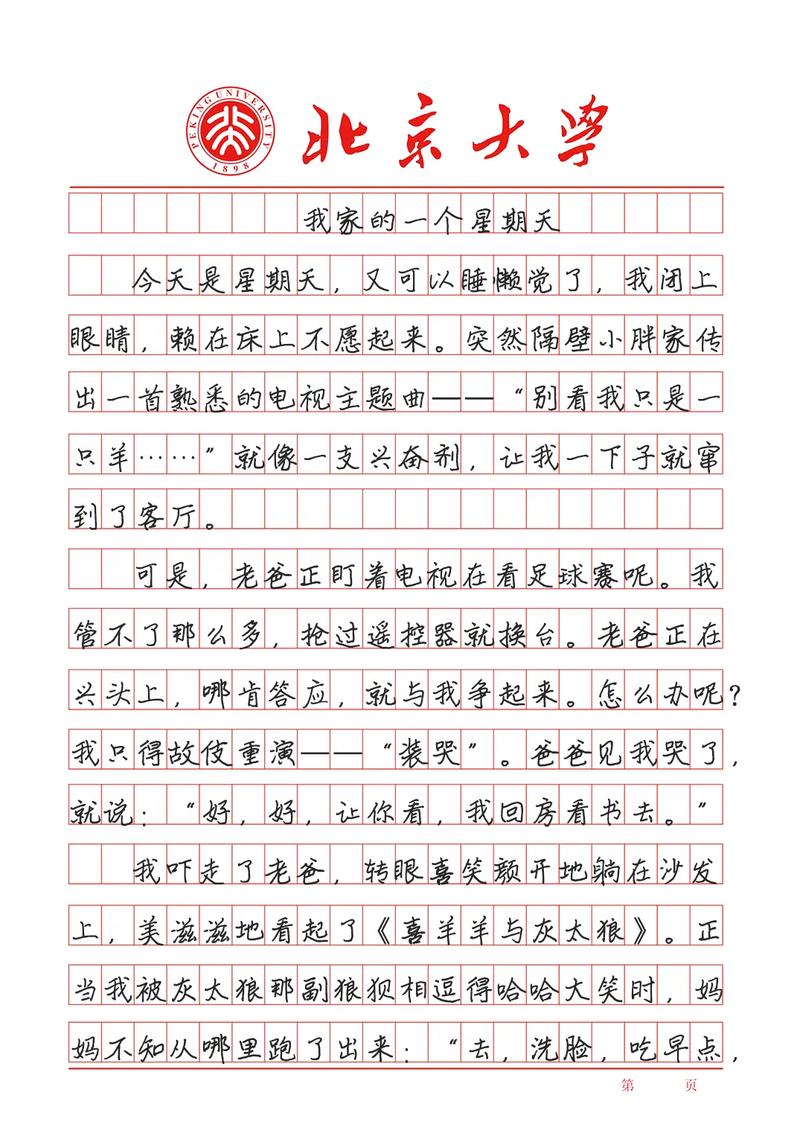 PEKING UNIVERSITY 1898
北京大学
我家的一个星期天
今天是星期天，又可以睡懒觉了，我闭上
眼睛，赖在床上不愿起来。突然隔壁小胖家传
出一首熟悉的电视主题曲——“别看我只是一
只羊……”就像一支兴奋剂，让我一下子就窜
到了客厅。
可是，老爸正盯着电视在看足球赛呢。我
管不了那么多，抢过遥控器就换台。老爸正在
兴头上，哪肯答应，就与我争起来。怎么办呢？
我只得故伎重演——“装哭”。爸爸见我哭了，
就说：“好，好，让你看，我回房看书去。”
我吓走了老爸，转眼喜笑颜开地躺在沙发
上，美滋滋地看起了《喜羊羊与灰太狼》。正
当我被灰太狼那副狼狈相逗得哈哈大笑时，妈
妈不知从哪里跑了出来：“去，洗脸，吃早点，
第 页